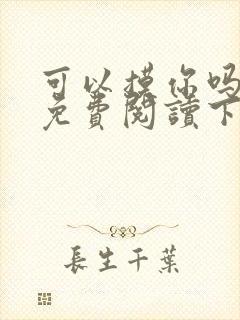 可以摸你吗
免費閱讀下
長生千葉